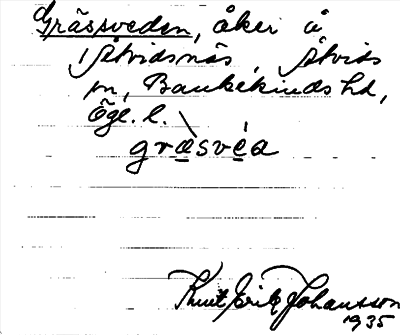 Grässveden, åker å
Åtvidsnäs, Åtvids
sn, Bankekinds hd,
Ögl. l.
græ̀svéa
Knut Erik Johansson
1935